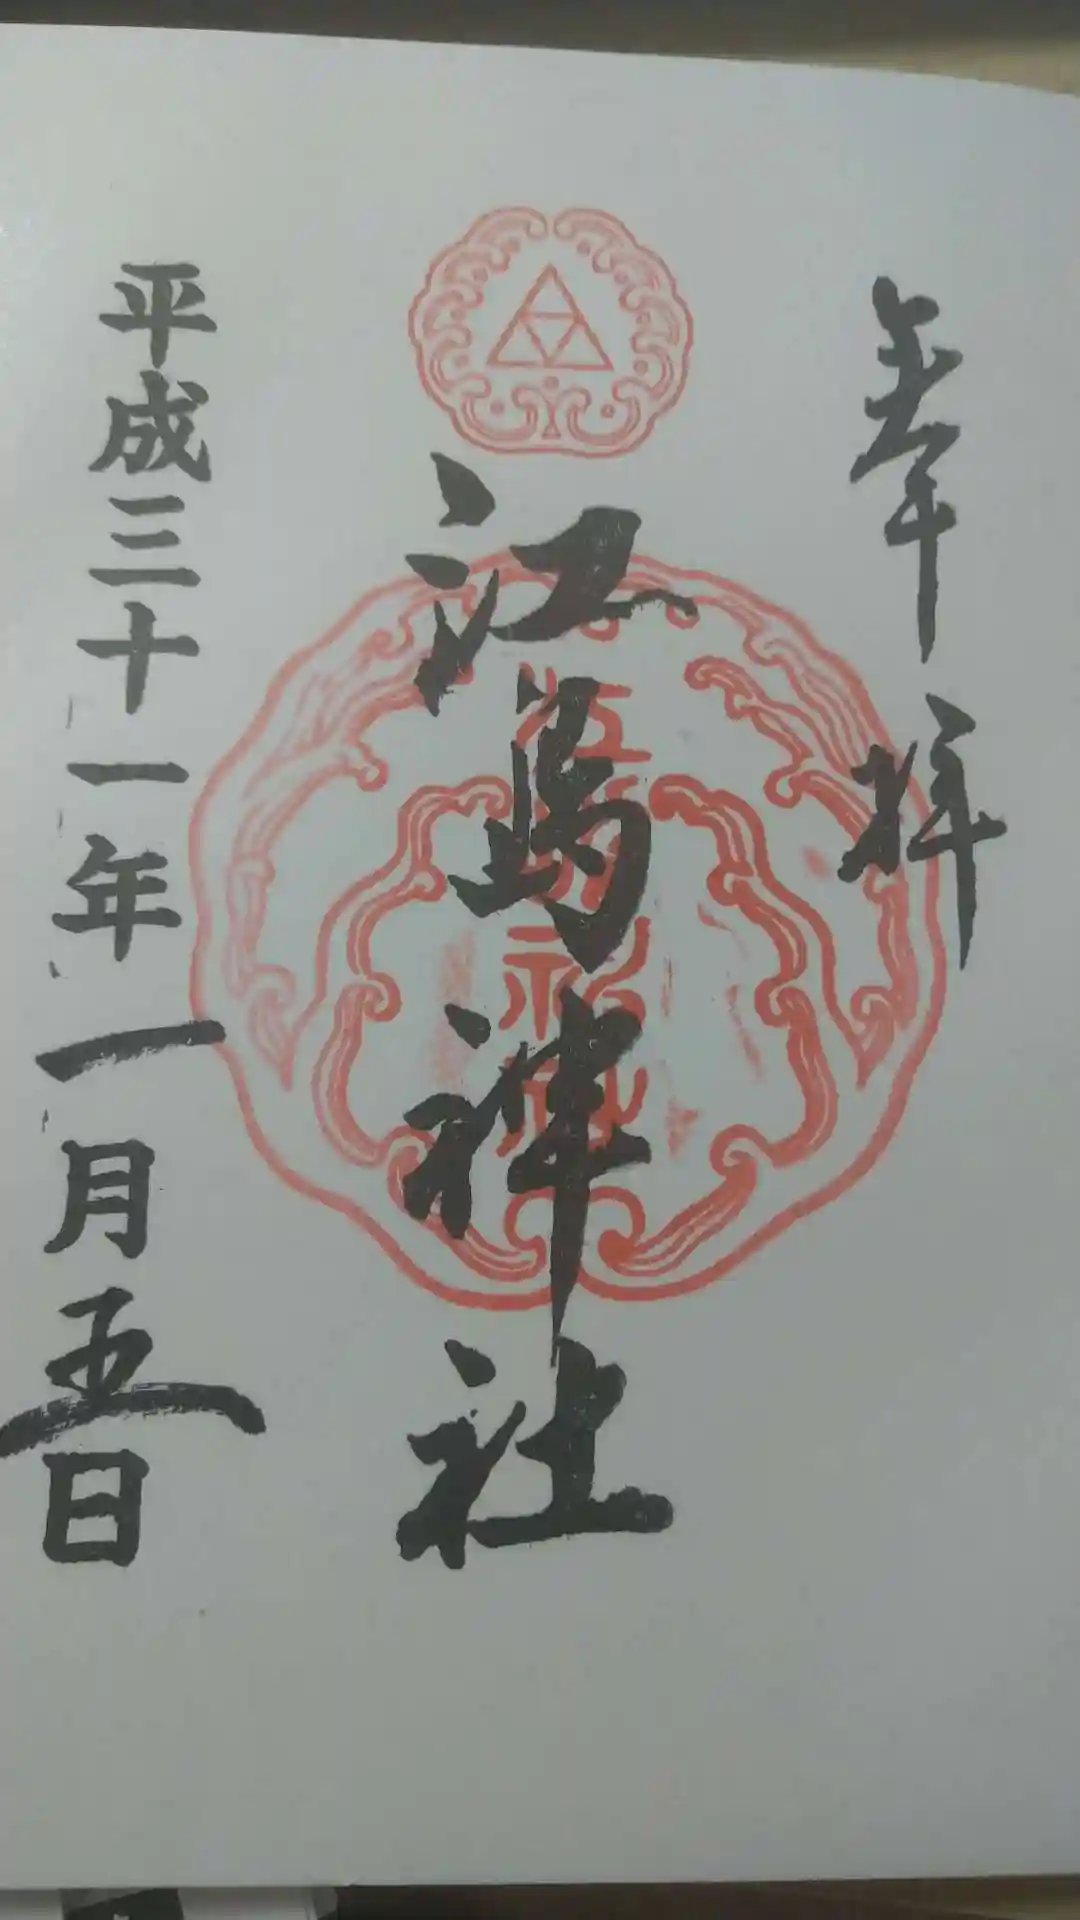 奉拝
江島神社
江島神社
平成三十一年一月五日